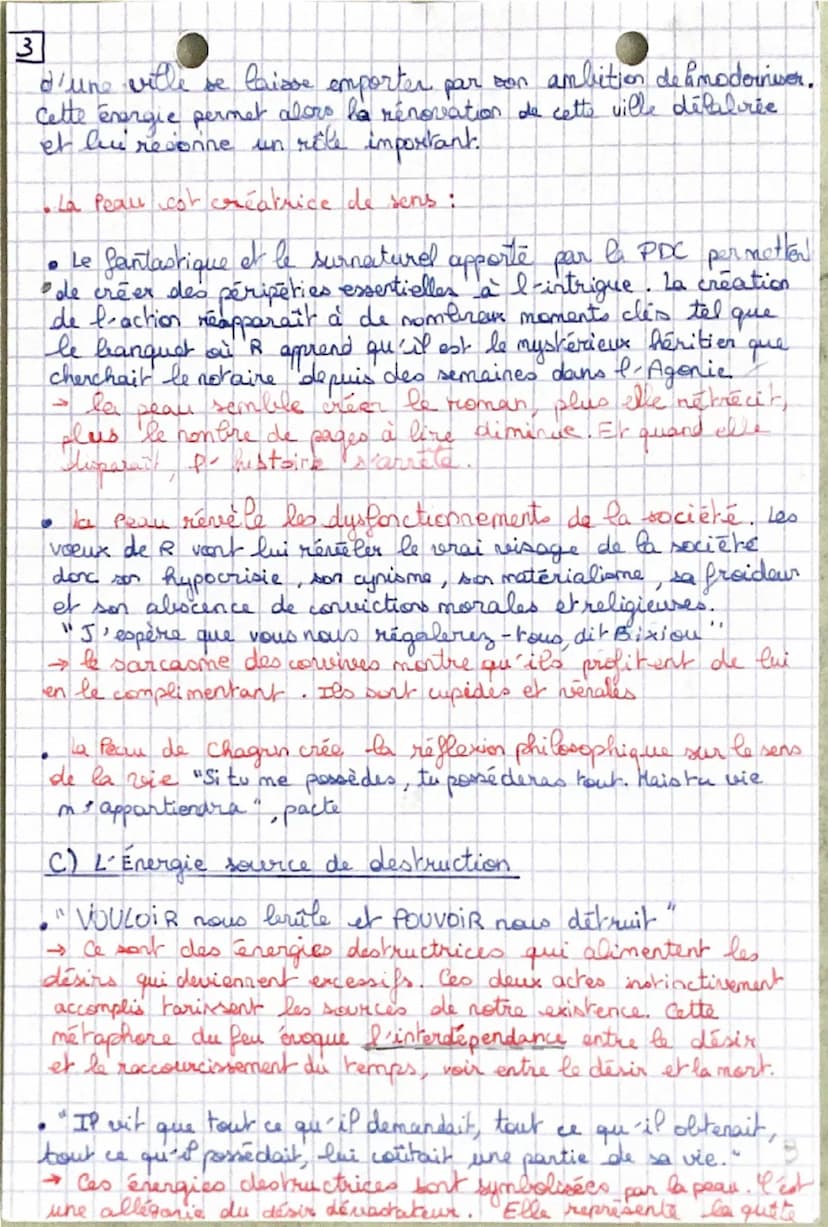 3
d'une ville se laisse emporter par son ambition de la moderniser.
Cette énergie permet alors la rénovation de cette ville délabrée
et lui redonne un rôle important.
• La Peau est créatrice de sens :
• Le fantastique et le surnaturel apporté par la PDC permettent
de créer des péripéties essentielles à l'intrigue. La création
de l'action réapparaît à de nombreux moments clés tel que
le banquet où R apprend qu'il est le mystérieux héritier que
cherchait le notaire depuis des semaines dans l'Agonie
→ la peau semble créer le roman, plus elle rétrécit,
plus le nombre de pages à lire diminue. Et quand elle
disparaît, l'histoire s'arrête.
• La Peau révèle les dysfonctionnements de la société. Les
voeux de R vont lui révéler le vrai visage de la société
donc son hypocrisie, son cynisme, son matérialisme, sa froideur
et son abscence de convictions morales et religieuses.
"J'espère que vous nous régalerez-tous, dit Bixiou"
→ le sarcasme des convives montre qu'ils profitent de lui
en le complimentant. Ils sont cupides et vénales
• La Peau de Chagrin crée la réflexion philosophique sur le sens
de la vie "Si tu me possèdes, tu posséderas tout. Mais ta vie
m'appartiendra", pacte
C) L'Énergie source de destruction
• "VOULOIR nous brûle et POUVOIR nous détruit"
→ Ce sont des énergies destructrices qui alimentent les
désirs qui deviennent excessifs. Ces deux actes instinctivement
accomplis tarissent les sources de notre existence. Cette
métaphore du feu évoque l'interdépendance entre le désir
et le raccourcissement du temps, voir entre le désir et la mort.
• "Il vit que tout ce qu'il demandait, tout ce qu'il obtenait,
tout ce qu'il possédait, lui coûtait une partie de sa vie."
→ Ces énergies destructrices sont symbolisées par la peau. C'est
une allégorie du désir dévastateur. Elle représente la quête